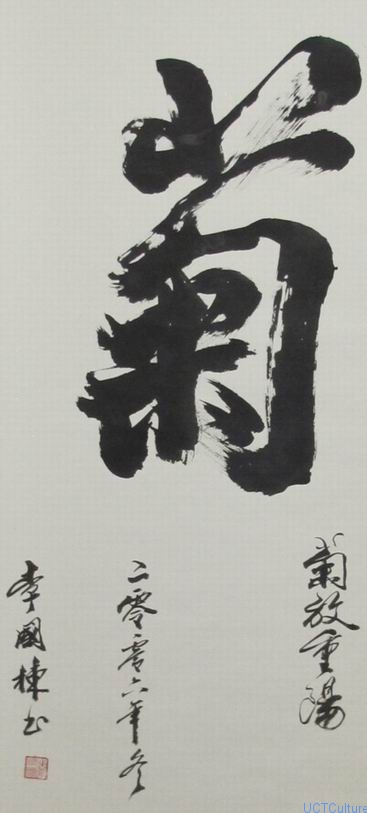 菊
菊放重陽
二零零六年冬
李國棟书
UCTCulture